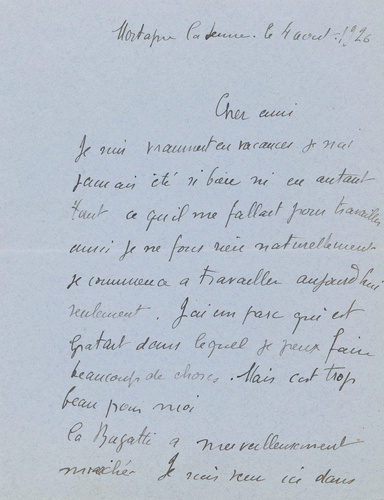 Mortagne la dame. le 4 août - 1926
Cher ami
Je suis vraiment en vacances je n'ai
jamais été si bien ni en autant
tout ce qu'il me fallait pour travailler
aussi je ne fous rien naturellement
je commence a travailler aujourd'hui
seulement. J'ai un parc qui est
épatant dans lequel je peux faire
beaucoup de choses. Mais c'est trop
beau pour moi
La Bugatti a merveilleusement
marchée Je suis venu ici dans